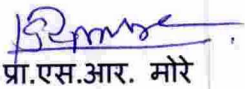 प्रा.एस.आर. मोरे